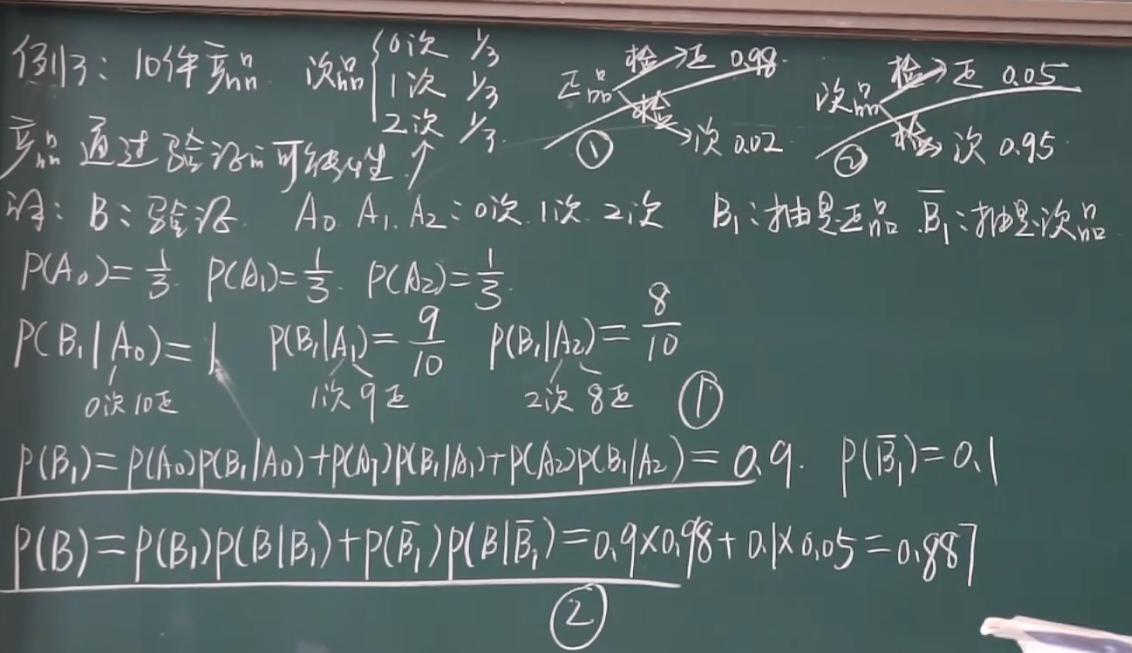 例3: 10件产品 次品 { 0次 1/3 正品 检→正 0.98 次品 检→正 0.05
1次 1/3
2次 1/3 检→次 0.02 检→次 0.95
① ②
产品通过验证的可能性↑
设: B: 验证 A₀ A₁ A₂: 0次 1次 2次 B₁: 抽是正品 B̅₁: 抽是次品
P(A₀)=1/3 P(A₁)=1/3 P(A₂)=1/3
P(B₁|A₀)=1 P(B₁|A₁)=9/10 P(B₁|A₂)=8/10
0次10正 1次9正 2次8正 ①
P(B₁)=P(A₀)P(B₁|A₀)+P(A₁)P(B₁|A₁)+P(A₂)P(B₁|A₂)=0.9. P(B̅₁)=0.1
P(B)=P(B₁)P(B|B₁)+P(B̅₁)P(B|B̅₁)=0.9×0.98+0.1×0.05=0.887
②